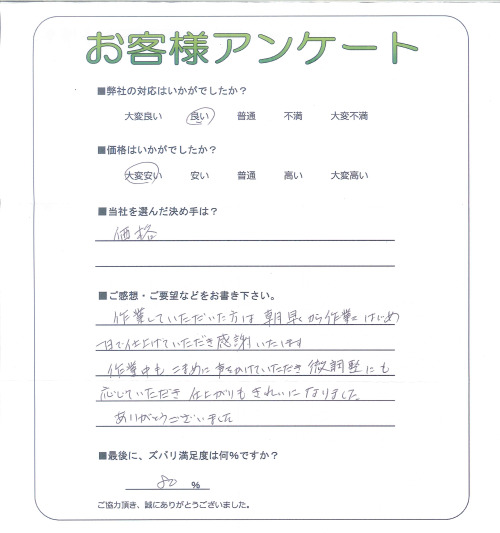 お客様アンケート
■弊社の対応はいかがでしたか？
大変良い 良い 普通 不満 大変不満
■価格はいかがでしたか？
大変安い 安い 普通 高い 大変高い
■当社を選んだ決め手は？
価格
■ご感想・ご要望などをお書き下さい。
作業していただいた方は 朝早くから作業に はじめ
一日で仕上げていただき感謝いたします
作業中も こまめに 声をかけていただき 微調整にも
応じていただき 仕上がりも きれいに なりました。
ありがとうございました
■最後に、ズバリ満足度は何％ですか？
80 ％
ご協力頂き、誠にありがとうございました。